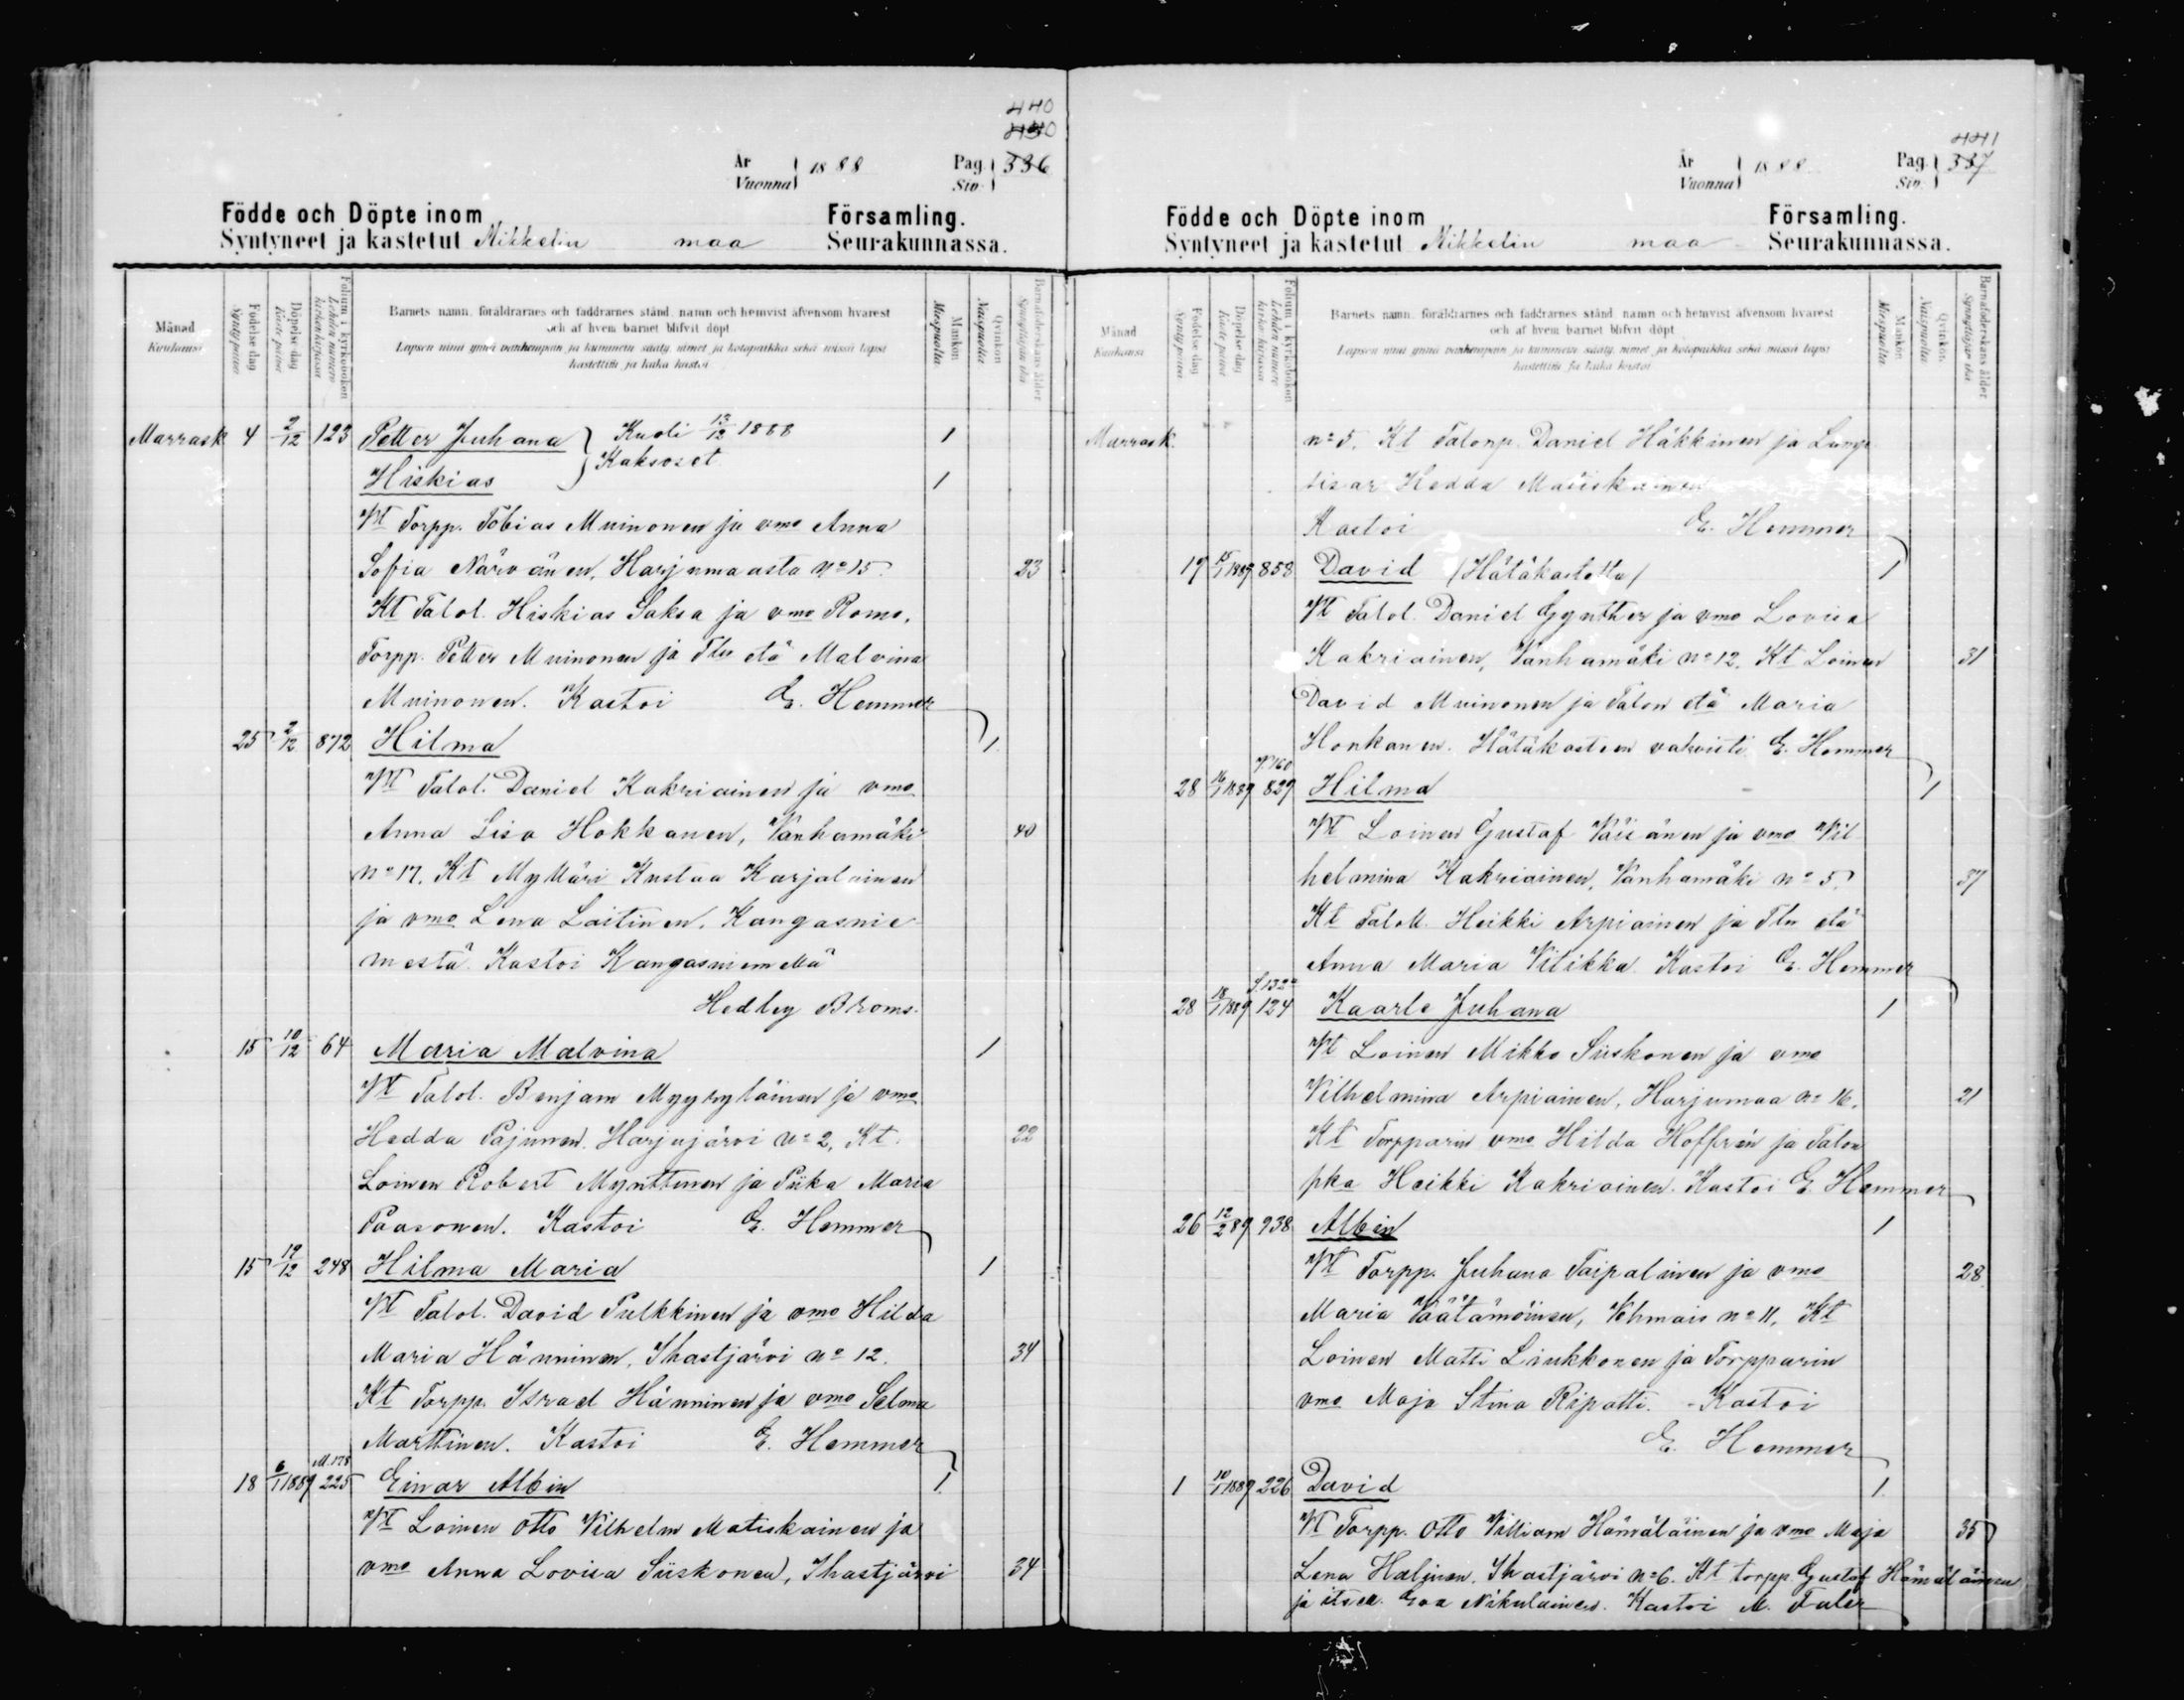 440
År Vuonna 1888 Pag. Siv. 336
Födde och Döpte inom Församling.
Syntyneet ja kastetut Mikkelin maa Seurakunnassa.
Månad Kuukausi
Födelse dag Syntypäivä
Döpelse dag Kastepäivä
Folium i kyrkoboken Lehden numero kirkonkirjassa
Barnets namn, föräldrarnes och faddrarnes stånd, namn och hemvist äfvensom hvarest
och af hvem barnet blifvit döpt
Lapsen nimi ynnä vanhempain ja kummein sääty, nimet ja kotopaikka sekä missä lapsi
kastettiin ja kuka kastoi
Mankön Miespuolia
Qvinkön Naispuolia
Barnaföderskans ålder Synnyttäjän ikä
Marrask 4 2/12 123 Petter Juhana } Kuoli 12/12 1888 1
Hiskias } Kaksoset 1
Vt Torpp. Tobias Muinonen ja vmo Anna
Sofia Närvänen, Harjumaasta No 15. 23
Kt Talol. Hiskias Saksa ja vmo Romo,
Torpp. Petter Muinonen ja Tln etä Malvina
Muinonen. Kastoi G. Hemmer
25 2/12 872 Hilma 1
Vt Talol. Daniel Kakriainen ja vmo
Anna Lisa Hokkanen, Vanhamäki 40
No 17. Kt Mylläri Kustaa Karjalainen
ja vmo Lena Laitinen, Kangasnie-
mestä. Kastoi Kangasniemellä
Hedley Broms.
15 10/12 64 Maria Malvina 1
Vt Talol. Benjam Myyryläinen ja vmo
Hedda Pajunen. Harjujärvi No 2, Kt. 22
Loinen Robert Mynttinen ja Piika Maria
Paasonen. Kastoi G. Hemmer
15 19/12 248 Hilma Maria 1
Vt Talol. David Pulkkinen ja vmo Hilda
Maria Hänninen, Ihastjärvi No 12. 34
Kt Torpp. Israel Hänninen ja vmo Selma
Marttinen. Kastoi G. Hemmer
M.178
18 6/1 1889 225 Einar Albin 1
Vt Loinen Otto Vilhelm Matiskainen ja
vmo Anna Loviisa Siiskonen, Ihastjärvi 34
441
År Vuonna 1888 Pag. Siv. 337
Födde och Döpte inom Församling.
Syntyneet ja kastetut Mikkelin maa Seurakunnassa.
Månad Kuukausi
Födelse dag Syntypäivä
Döpelse dag Kastepäivä
Folium i kyrkoboken Lehden numero kirkonkirjassa
Barnets namn, föräldrarnes och faddrarnes stånd, namn och hemvist äfvensom hvarest
och af hvem barnet blifvit döpt
Lapsen nimi ynnä vanhempain ja kummein sääty, nimet ja kotopaikka sekä missä lapsi
kastettiin ja kuka kastoi
Mankön Miespuolia
Qvinkön Naispuolia
Barnaföderskans ålder Synnyttäjän ikä
Marrask. No 5. Kt Talonp. Daniel Häkkinen ja
sisar Hedda Matiskainen
Kastoi G. Hemmer
19 15/1 1889 858 David (Hätäkastettu) 1
Vt Talol. Daniel Gynther ja vmo Loviisa
Kakriainen, Vanhamäki No 12. Kt Loinen 31
David Muinonen ja Talon etä Maria
Honkanen. Hätäkasteen vahvisti G. Hemmer
28 16/1 1889 829 Hilma 1
Vt Loinen Gustaf Väisänen ja vmo Vil
helmina Kakriainen, Vanhamäki No 5. 37
Kt Taloll. Heikki Arpiainen ja Tln etä
Anna Maria Vitikka. Kastoi G. Hemmer
28 18/1 1889 124 Kaarle Juhana 1
Vt Loinen Mikko Siiskonen ja vmo
Vilhelmina Arpiainen, Harjumaa No 16. 21
Kt Torpparin vmo Hilda Hoffrén ja Talon
pka Heikki Kakriainen. Kastoi G. Hemmer
26 12/2 89 938 Albin 1
Vt Torpp. Juhana Taipalinen ja vmo 28
Maria Väätämöinen, Vehmais No 11, Kt
Loinen Matti Liukkonen ja Torpparin
vmo Maja Stina Ripatti. - Kastoi
G. Hemmer
1 10/1 1889 226 David 1
Vt Torpp. Otto Villiam Hämäläinen ja vmo Maja 35
Lena Haljnen. Ihastjärvi No 6. Kt torpp. Gustaf Hämäläinen
ja itsell. Eva Nikulainen. Kastoi M. Fulér